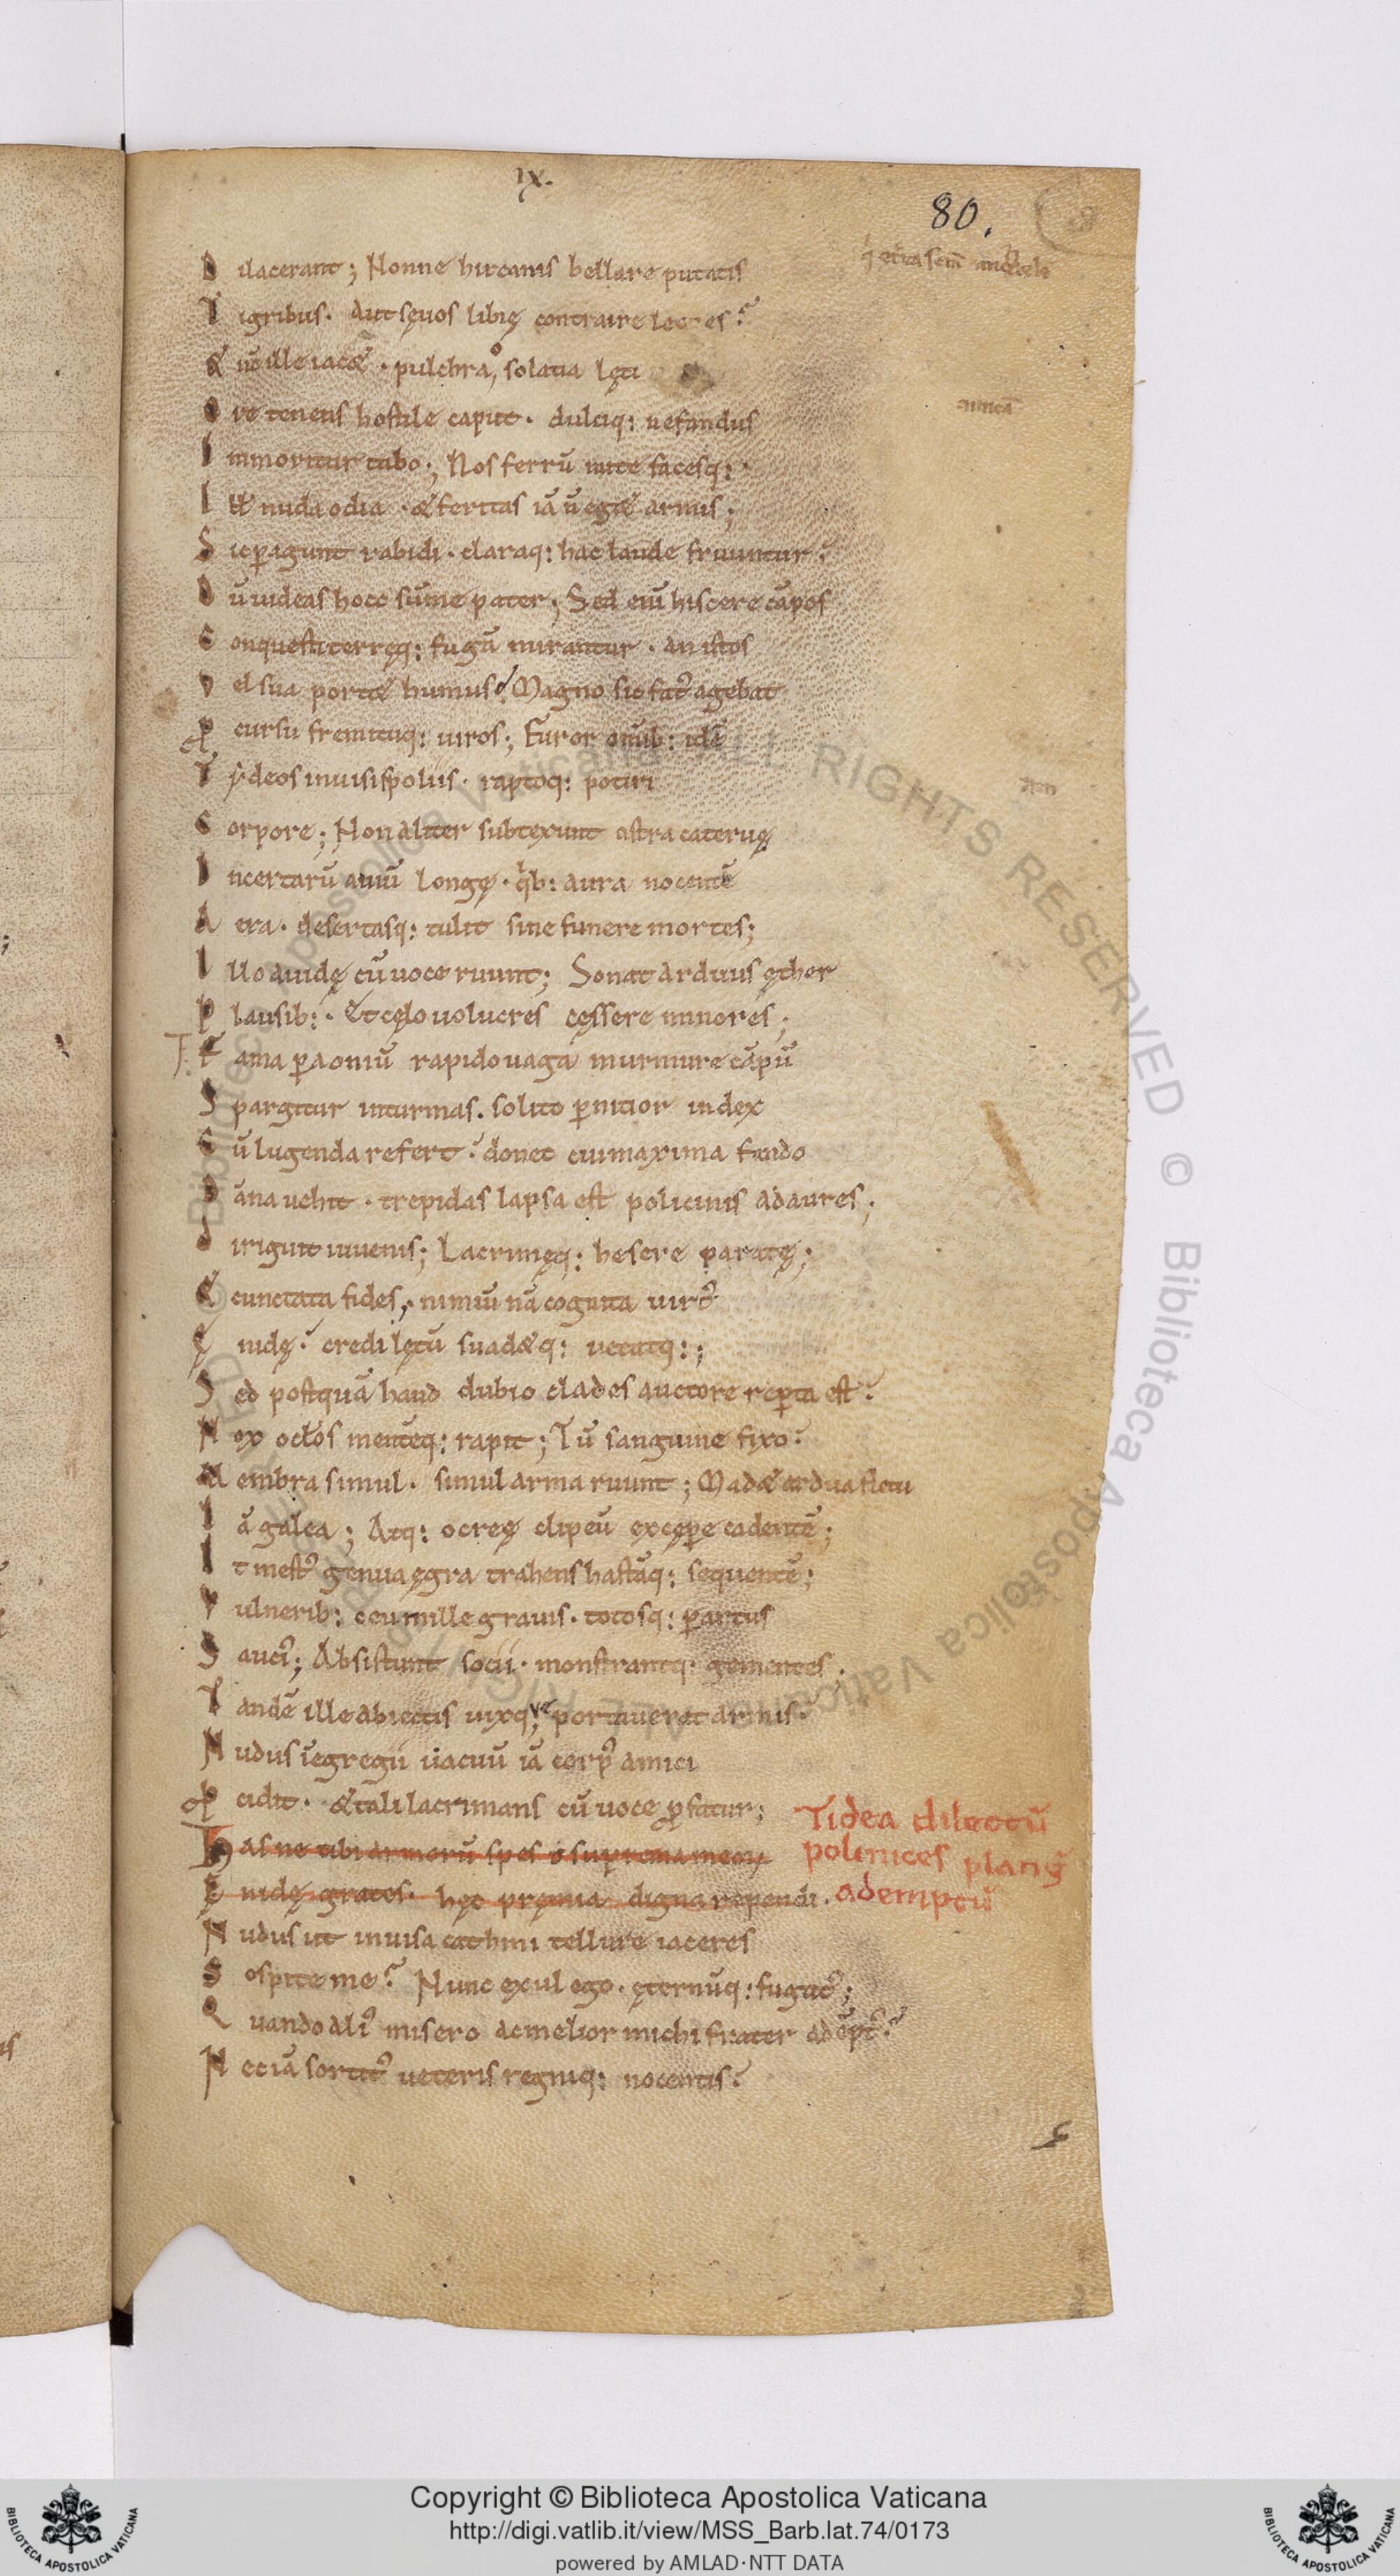 IX.
80.
Dilacerant; Nonne hircanis bellare putatis
Tigribus. Aut sęuos libię contraire leones?
& nc̄ ille iac& . pulchra, o solatia lęti
Ore tenens hostile caput . dulciq: nefandus
Inmoritur tabo; Nos ferrū mite facesq:
Ill& nuda odia . & feritas iā ñ eg& armis;
Sic ꝑagunt rabidi . claraq: hac laude fruuntur.
Dū uideas hoc sūme pater; Sed eni͞ hiscere cāpos
Conquesti terręq: fugā mirantur . an istos
Vel sua port& humus? Magno sic fat᷒ agebat
Ꝓcursu fremituq: uiros; Furor om͞ib: idē
Tydeos inuisi spoliis . raptoq: potiri
Corpore; Non aliter subtexunt astra cateruę
Incertarū auiū longę . qͥb: aura nocentē
Aera . desertasq: tulit sine funere mortes;
Illo auidę cū uoce ruunt; Sonat arduus ęther
Plausib: . Et cęlo uolucres cessere minores;
Fama ꝑ aoniū rapido uaga murmure cāpū
Spargitur in turmas . solito ꝑnitior index
Cū lugenda refert . donec cui maxima fando
Dāna uehit . trepidas lapsa est policinis ad aures;
diriguit iuuenis; Lacrimęq: hesere paratę;
& cunctata fides . nimiū nā cognita uirt᷒
Ęnidę . credi lętū suad&q: uetatq: ;
Sed postquā haud dubio clades auctore reꝑta est.
Nox oc̄los mentēq: rapit; Tū sanguine fixo.
Membra simul . simul arma ruunt; Mad& ardua fletu
Iā galea; Atq: ocreę clipeū exceꝑe cadentē;
It mest᷒ genua ęgra trahens hastāq: sequentē;
Vulnerib: ceu mille grauis . totosq: ꝑ artus
Sauci᷒; Absistunt socii . monstrantq: gementes;
Tandē ille abiectis uixq;ve portauerat armis.
Nudus ī egregii uacuū iā corp᷒ amici
Ꝓcidit . & tali lacrimans cū uoce ꝓfatur;
Tidea dilectū
polinices plang᷒
ademptū
Hasne tibi armorū spes o suprema meoꝝ
Ęnidę grates . hęc pręmia digna rependi.
Nudus ut inuisa cathmi tellure iaceres
Sospite me? Nunc exul ego . ęternūq: fugat᷒;
Quando ali᷒ misero ac melior michi frater adēpt᷒.
Nec iā sortit᷒ ueteris regniq: nocentis.
Copyright © Biblioteca Apostolica Vaticana
http://digi.vatlib.it/view/MSS_Barb.lat.74/0173
powered by AMLAD·NTT DATA